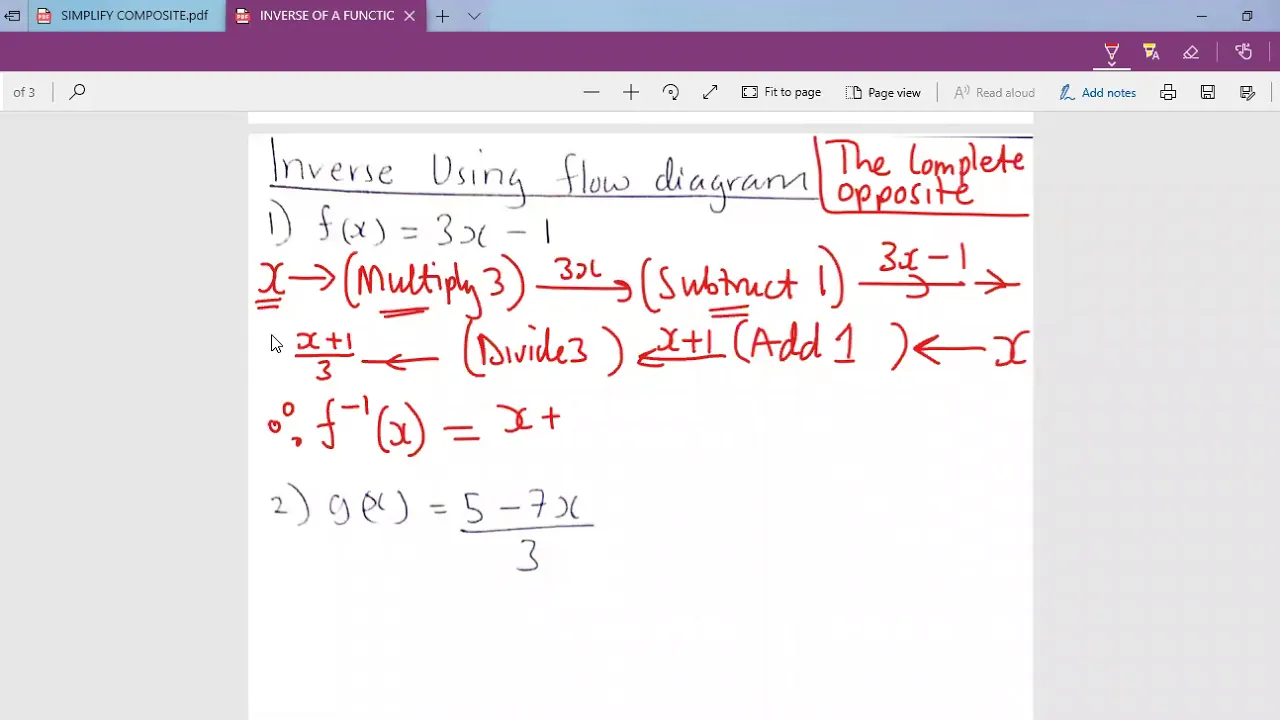 SIMPLIFY COMPOSITE.pdf
INVERSE OF A FUNCTIC
of 3
Fit to page
Page view
Read aloud
Add notes
Inverse Using flow diagram
The Complete
opposite
1) f(x) = 3x - 1
x → (Multiply 3) 3x → (Subtract 1) 3x - 1 →
x+1/3 ← (Divide 3) x+1 ← (Add 1) ← x
∴ f⁻¹(x) = x +
2) g(x) = 5 - 7x
3